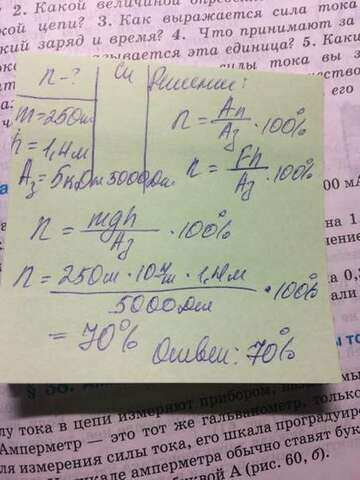 2. Какой величиной опреде
кой цепи? 3. Как выражается сила тока
кий заряд и время? 4. Что принимают за
зывается эта единица? 5. Каки
силы тока вы з
n-?
Си
Решение:
m=250кг
h=1,4м
Aз=5кДж
5000Дж
n = Aп/Aз · 100%
n = Fh/Aз · 100%
n = mgh/Aз · 100%
n = 250кг · 10 н/кг · 1,4м / 5000Дж · 100%
= 70% Ответ: 70%
лу тока в цепи измеряют прибором, назыв
Амперметр — это тот же гальванометр, только
ля измерения силы тока, его шкала проградуиро
амперметра обычно ставят бук
буквой А (рис. 60, б).